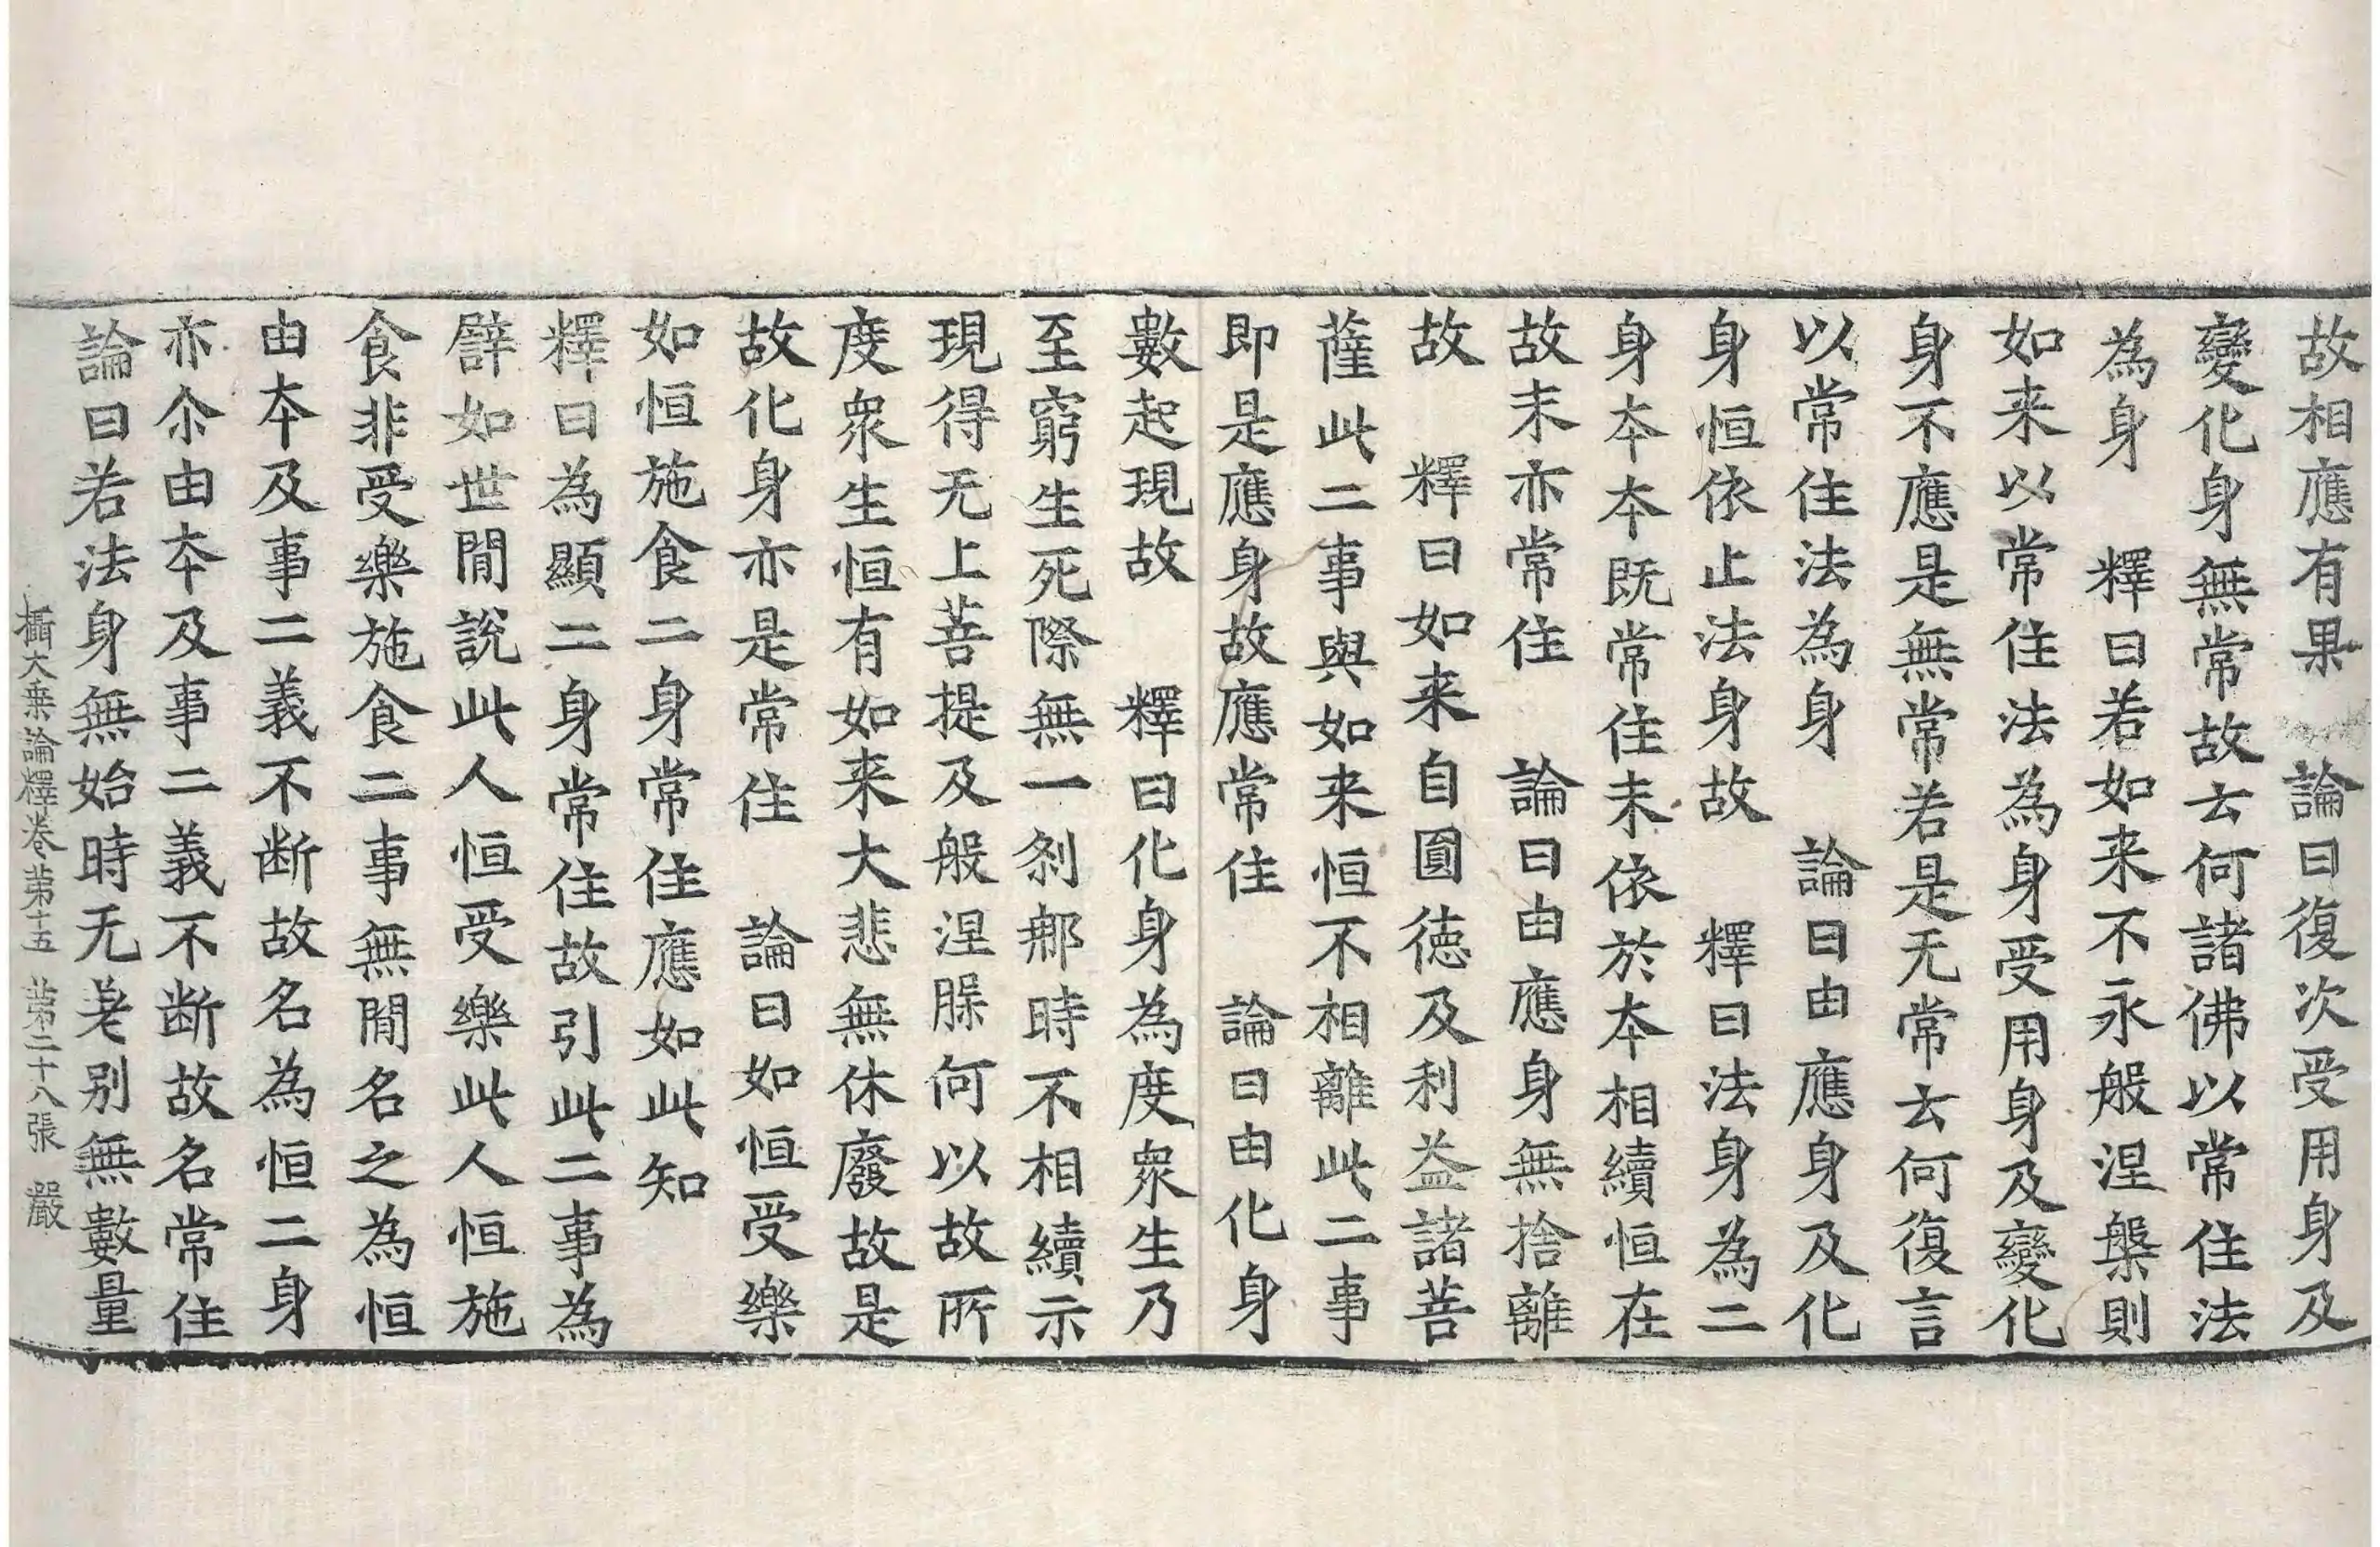 故相應有果　論曰復次受用身及
變化身無常故云何諸佛以常住法
為身　釋曰若如来不永般涅槃則
如来以常住法為身受用身及變化
身不應是無常若是无常云何復言
以常住法為身　論曰由應身及化
身恒依止法身故　釋曰法身為二
身夲夲既常住末依於夲相續恒在
故末亦常住　論曰由應身無捨離
故　釋曰如来自圓德及利益諸菩
薩此二事與如来恒不相離此二事
即是應身故應常住　論曰由化身
數起現故　釋曰化身為度衆生乃
至窮生死際無一剎那時不相續示
現得无上菩提及般涅槃何以故所
度衆生恒有如来大悲無休廢故是
故化身亦是常住　論曰如恒受樂
如恒施食二身常住應如此知
釋曰為顯二身常住故引此二事為
譬如世間說此人恒受樂此人恒施
食非受樂施食二事無間名之為恒
由夲及事二義不断故名為恒二身
亦尒由夲及事二義不断故名常住
論曰若法身無始時无差别無數量
攝大乗論釋卷苐十五　苐二十八張　嚴